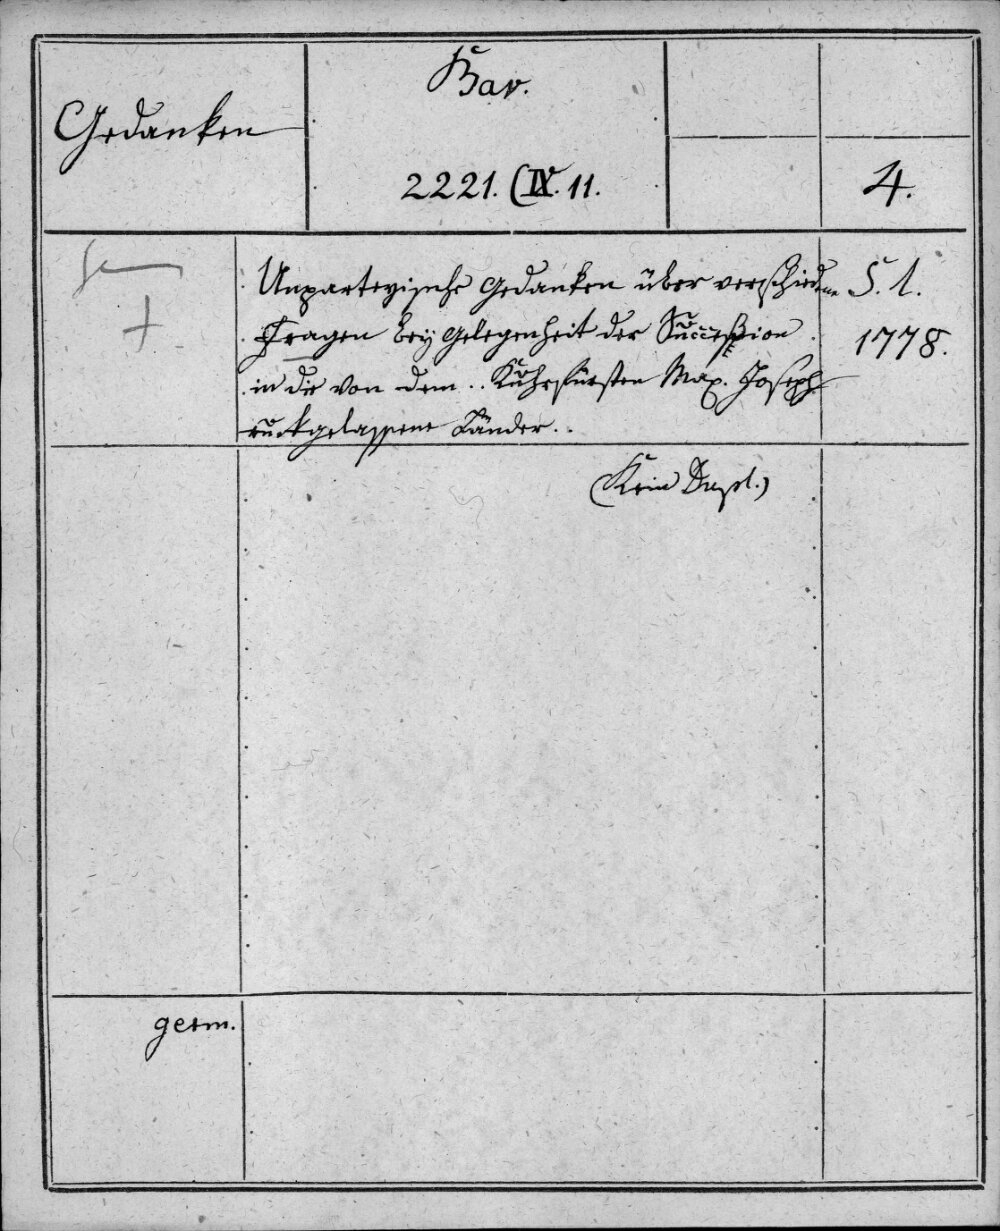 Gedanken
Bav.
2221. (IX. 11.
4.
Unparteyische Gedanken über verschiedene
Fragen bey Gelegenheit der Succession
in die von dem .. Kuhrfürsten Max. Joseph
ruckgelassene Länder..
S. l.
1778.
(Kein Dupl.)
germ.